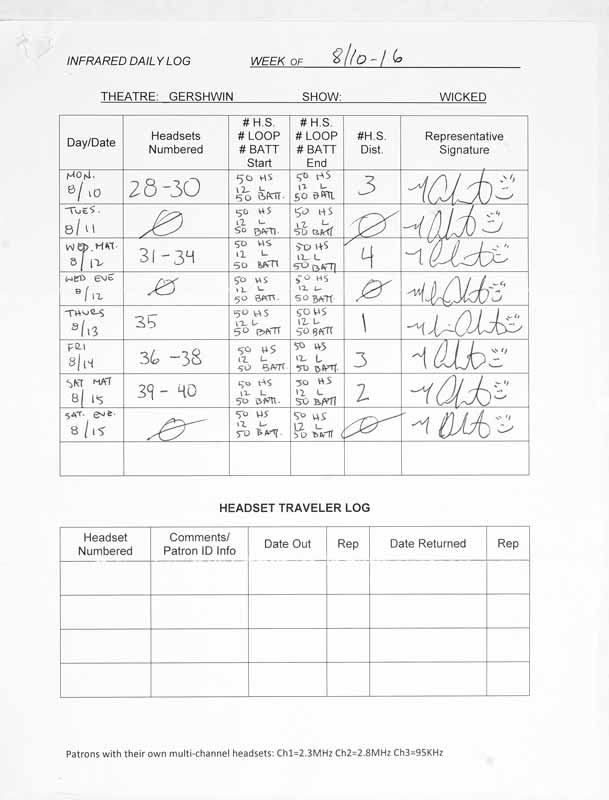 INFRARED DAILY LOG WEEK OF 8/10-16
THEATRE: GERSHWIN SHOW: WICKED
Day/Date Headsets Numbered # H.S. # LOOP # BATT Start # H.S. # LOOP # BATT End #H.S. Dist. Representative Signature
MON. 8/10 28-30 50 HS 12 L 50 BATT. 50 HS 12 L 50 BATT. 3
TUES. 8/11 Ø 50 HS 12 L 50 BATT. 50 HS 12 L 50 BATT. Ø
WED. MAT. 8/12 31-34 50 HS 12 L 50 BATT 50 HS 12 L 50 BATT. 4
WED EVE 8/12 Ø 50 HS 12 L 50 BATT. 50 HS 12 L 50 BATT. Ø
THURS 8/13 35 50 HS 12 L 50 BATT 50 HS 12 L 50 BATT 1
FRI 8/14 36-38 50 HS 12 L 50 BATT. 50 HS 12 L 50 BATT. 3
SAT MAT 8/15 39-40 50 HS 12 L 50 BATT. 50 HS 12 L 50 BATT. 2
SAT. EVE. 8/15 Ø 50 HS 12 L 50 BATT. 50 HS 12 L 50 BATT. Ø
HEADSET TRAVELER LOG
Headset Numbered Comments/ Patron ID Info Date Out Rep Date Returned Rep
Patrons with their own multi-channel headsets: Ch1=2.3MHz Ch2=2.8MHz Ch3=95KHz